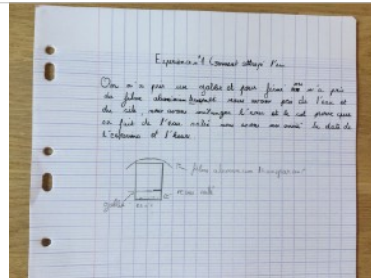 Expérience n°1 Comment attrapé l'eau
On n'a pris un gobelet pour fermé on n'a pris
du film aluminium transparent nous avons pris de l'eau et
du sel, nous avons mélangé l'eau et le sel parce que
ça fait de l'eau salé nous avons la date de
l'expérience et l'heure
film aluminium transparent
eau salé
gobelet